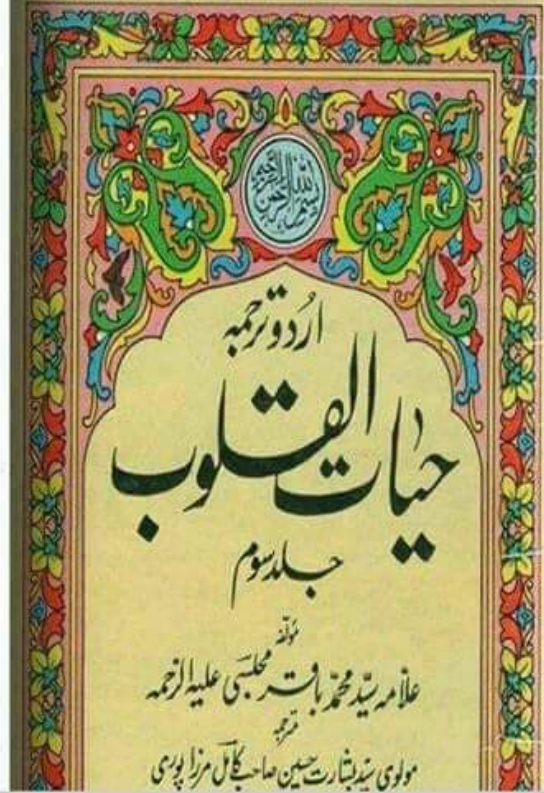 بسم الله الرحمن الرحیم
اردو ترجمہ
حیات القلوب
جلد سوم
مؤلفہ
علامہ سید محمد باقر مجلسی علیہ الرحمہ
مترجمہ
مولوی سید بشارت حسین صاحب کامل مرزا پوری